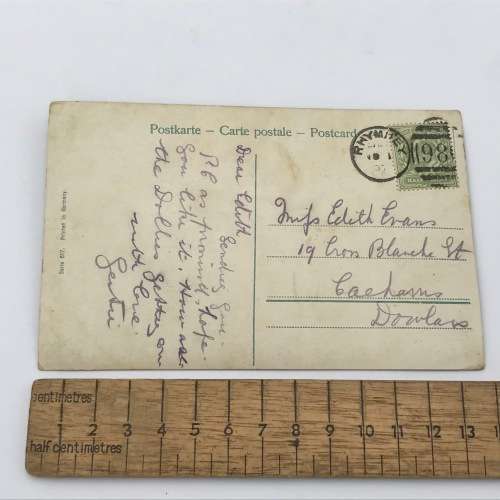 Postkarte – Carte postale – Postcard
RHYMNEY
98
Serie 617. Printed in Germany.
Dear Edith
Sending you
P.C as promised. Hope
you like it. How are
the Dollies getting on
with love
Gertie
Miss Edith Evans
19 Cross Blanche St
Caeharris
Dowlais
centimetres
1 2 3 4 5 6 7 8 9 10 11 12 13
half centimetres